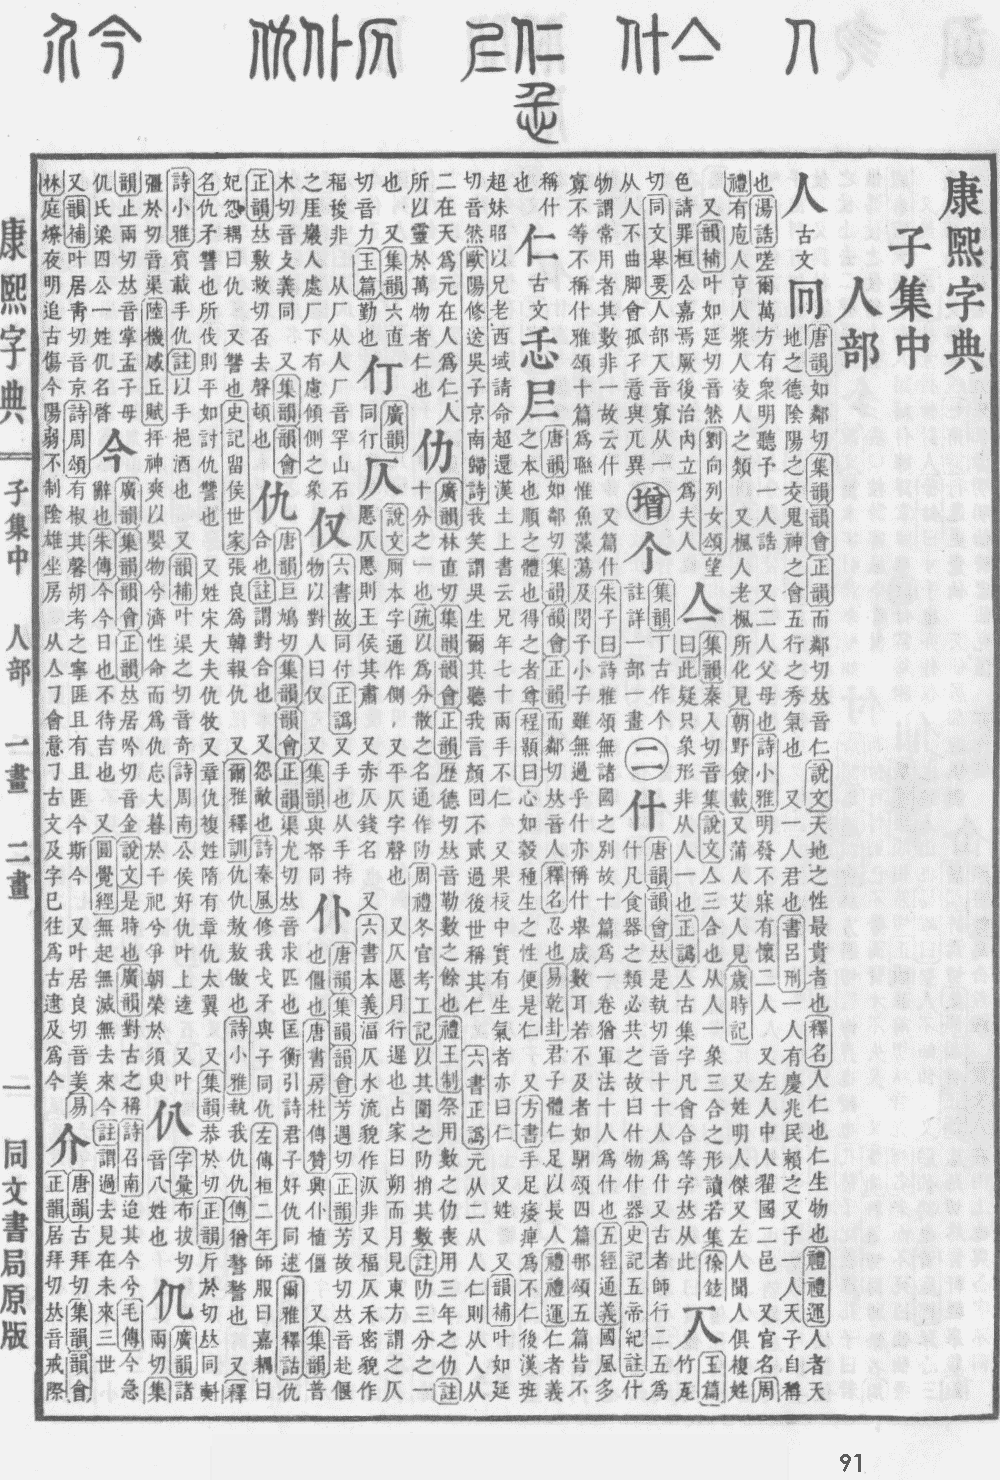 人 仌 什 仁 仁 忎 仄 仆 仇 今 介
康熙字典
子集中
人部
人 古文 唐韻如鄰切集韻韻會正韻而鄰切𠀤音仁說文天地之性最貴者也釋名人仁也仁生物也禮禮運人者天
地之德陰陽之交鬼神之會五行之秀氣也 又一人君也書呂刑一人有慶兆民賴之又予一人天子自稱
也湯誥嗟爾萬方有衆明聽予一人誥 又二人父母也詩小雅明發不寐有懷二人 又左人中人翟國二邑 又官名周
禮有庖人亨人漿人凌人之類 又楓人老楓所化見朝野僉載又蒲人艾人見歲時記 又姓明人傑又左人聞人俱複姓
又韻補叶如延切音然劉向列女頌望
色請罪桓公嘉焉厥後治內立爲夫人
亼 集韻秦入切音集說文亼三合也从人一象三合之形讀若集徐鉉
曰此疑只象形非从人一也正譌亼古集字凡會合等字𠀤从此
𠆣 玉篇竹瓦
切同文舉要人部𠆣音寡从一
从人不曲脚會孤孑意與兀異
增 个 集韻丁古作个
註詳丨部一畫
二 什 唐韻韻會𠀤是執切音十十人爲什又古者師行二五爲
什凡食器之類必共之故曰什物什器史記五帝紀註什
物謂常用者其數非一故云什 又篇什朱子曰詩雅頌無諸國之別故十篇爲一卷猶軍法十人爲什也五經通義國風多
寡不等不稱什雅頌十篇爲聯惟魚藻蕩及閔予小子雖無過乎什亦稱什舉成數耳若不及者如駉頌四篇那頌五篇皆不
稱什
也
仁 古文 忎 𡰥 唐韻如鄰切集韻韻會正韻而鄰切𠀤音人釋名忍也易乾卦君子體仁足以長人禮禮運仁者義
之本也順之體也得之者尊程顥曰心如穀種生之性便是仁 又方書手足痿痺爲不仁後漢班
超妹昭以兄老西域請命超還漢土上書云兄年七十兩手不仁 又果核中實有生氣者亦曰仁 又姓 又韻補叶如延
切音然歐陽修送吳子京南歸詩我笑謂吳生爾其聽我言顏回不貳過後世稱其仁 六書正譌元从二从人仁則从人从
二在天爲元在人爲仁人
所以靈於萬物者仁也
仂 廣韻林直切集韻韻會正韻歷德切𠀤音勒數之餘也禮王制祭用數之仂喪用三年之仂註
十分之一也疏以爲分散之名通作阞周禮冬官考工記以其圍之阞捎其數註阞三分之一
也 又集韻六直
切音力玉篇勤也
仃 廣韻
同行
仄 說文厠本字通作側 又平仄字聲也 又仄慝月行遲也占家曰朔而月見東方謂之仄
慝仄慝則王侯其肅 又赤仄錢名 又六書本義湢仄水流貌作沠非又福仄禾密貌作
福稄非 从厂从人厂音罕山石
之厓巖人處厂下有慮傾側之象
仅 六書故同付正譌又手也从手持
物以對人曰仅 又集韻與帑同
仆 唐韻集韻韻會芳遇切正韻芳故切𠀤音赴偃
也僵也唐書房杜傳贊興仆植僵 又集韻普
木切音攴義同 又集韻韻會
正韻𠀤敷救切否去聲頓也
仇 唐韻巨鳩切集韻韻會正韻渠尤切𠀤音求匹也匡衡引詩君子好仇同逑爾雅釋詁仇
合也註謂對合也 又怨敵也詩秦風修我戈矛與子同仇左傳桓二年師服曰嘉耦曰
妃怨耦曰仇 又讐也史記留侯世家張良爲韓報仇 又爾雅釋訓仇仇敖敖傲也詩小雅執我仇仇傳猶謷謷也 又釋
名仇矛讐也所伐則平如討仇讐也 又姓宋大夫仇牧又章仇複姓隋有章仇太翼 又集韻恭於切正韻斤於切𠀤同㪺
詩小雅賓載手仇註以手挹酒也 又韻補叶渠之切音奇詩周南公侯好仇叶上逵 又叶
彊於切音渠陸機感丘賦抨神爽以嬰物兮濟性命而爲仇忘大暮於千祀兮爭朝榮於須臾
仈 字彙布拔切
音八姓也
仉 廣韻諸
兩切集
韻止兩切𠀤音掌孟子母
仉氏梁四公一姓仉名𦶜
今 廣韻集韻韻會正韻𠀤居吟切音金說文是時也廣韻對古之稱詩召南迨其今兮毛傳今急
辭也朱傳今今日也不待吉也 又圓覺經無起無滅無去來今註謂過去見在未來三世
又韻補叶居靑切音京詩周頌有椒其馨胡考之寧匪且有且匪今斯今 又叶居良切音姜易
林庭燎夜明追古傷今陽弱不制陰雄坐房 从亼㇆會意㇆古文及字已往爲古逮及爲今
介 唐韻古拜切集韻韻會
正韻居拜切𠀤音戒際
康熙字典 子集中 人部 一畫 二畫 一 同文書局原版
91